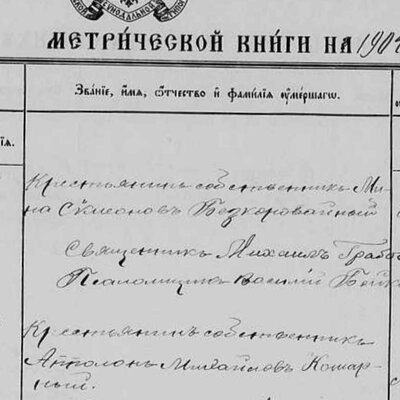 СѴНОДАЛЬНОЙ
МЕТРИ́ЧЕСКОЙ КНИ́ГИ НА 190
Зва́нїе, и҆́мѧ, ѻ҆́тчество и҆ фами́лїѧ ᲂу҆ме́ршагѡ.
їѧ.
Крестьянинъ собственникъ Ми-
на Сѵмеоновъ Бедкоровайный
Священникъ Михаилъ Грабо
Псаломщикъ Василій Бейк
Крестьянинъ собственникъ
Апполонъ Михайловъ Кошар-
ный.